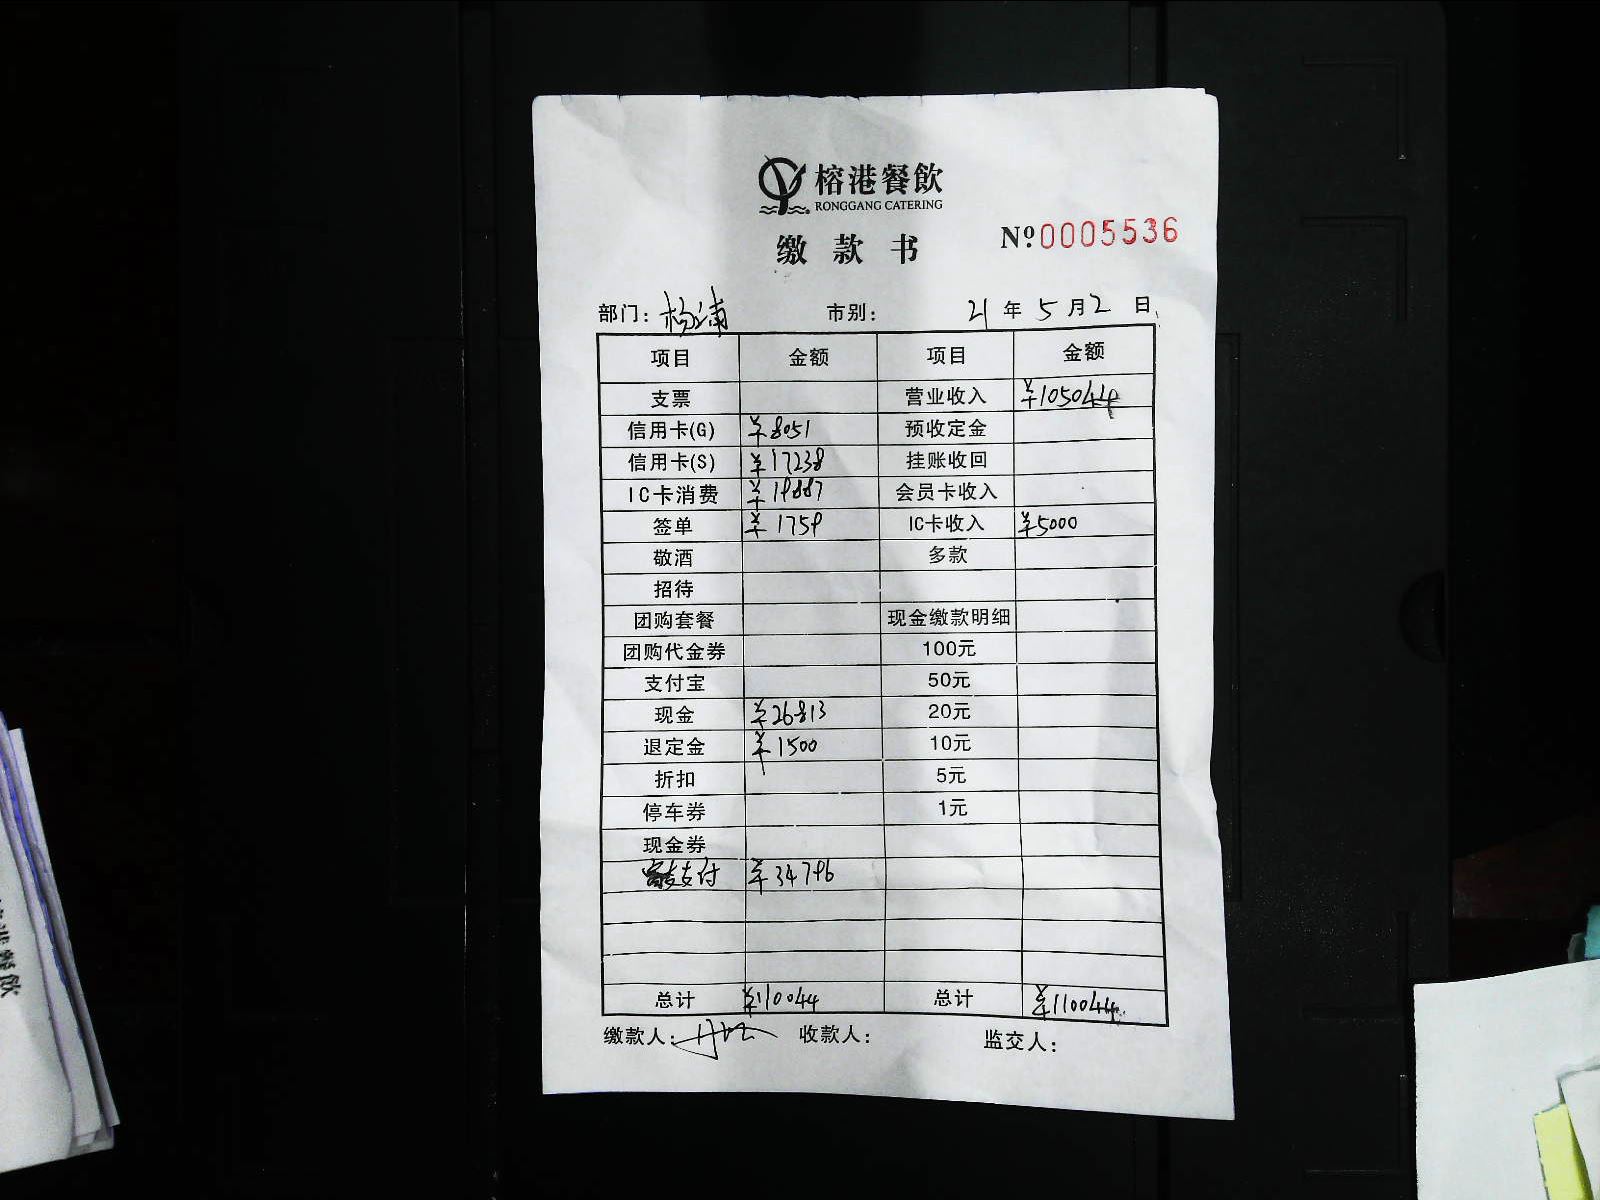 榕港餐飲
RONGGANG CATERING
缴款书 №0005536
部门：杨浦 市别： 21年5月2日
项目 金额 项目 金额
支票 营业收入 ¥105044
信用卡(G) ¥8051 预收定金
信用卡(S) ¥17238 挂账收回
IC卡消费 ¥19887 会员卡收入
签单 ¥1759 IC卡收入 ¥5000
敬酒 多款
招待
团购套餐 现金缴款明细
团购代金券 100元
支付宝 50元
现金 ¥26813 20元
退定金 ¥1500 10元
折扣 5元
停车券 1元
现金券
支付 ¥34796
总计 ¥110044 总计 ¥110044
缴款人： 收款人： 监交人：
港餐飲